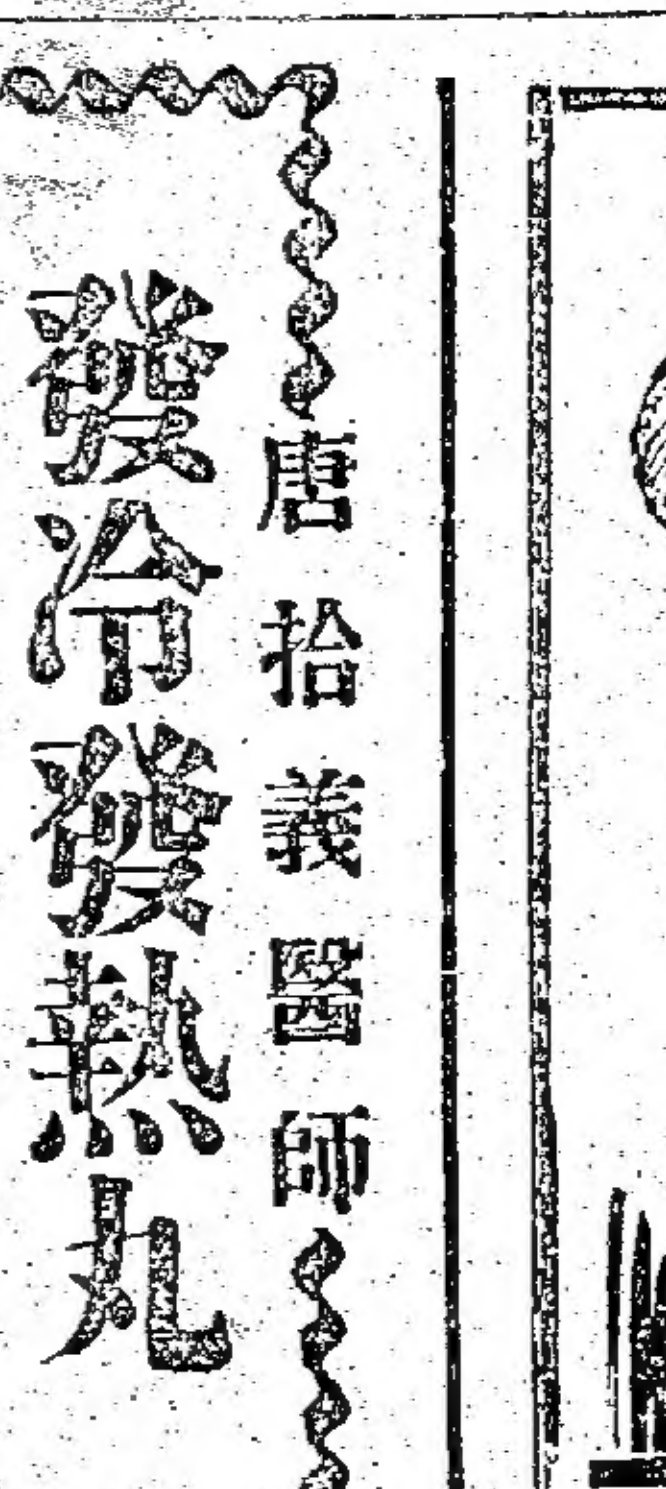 唐拾義醫師
發冷發熱丸